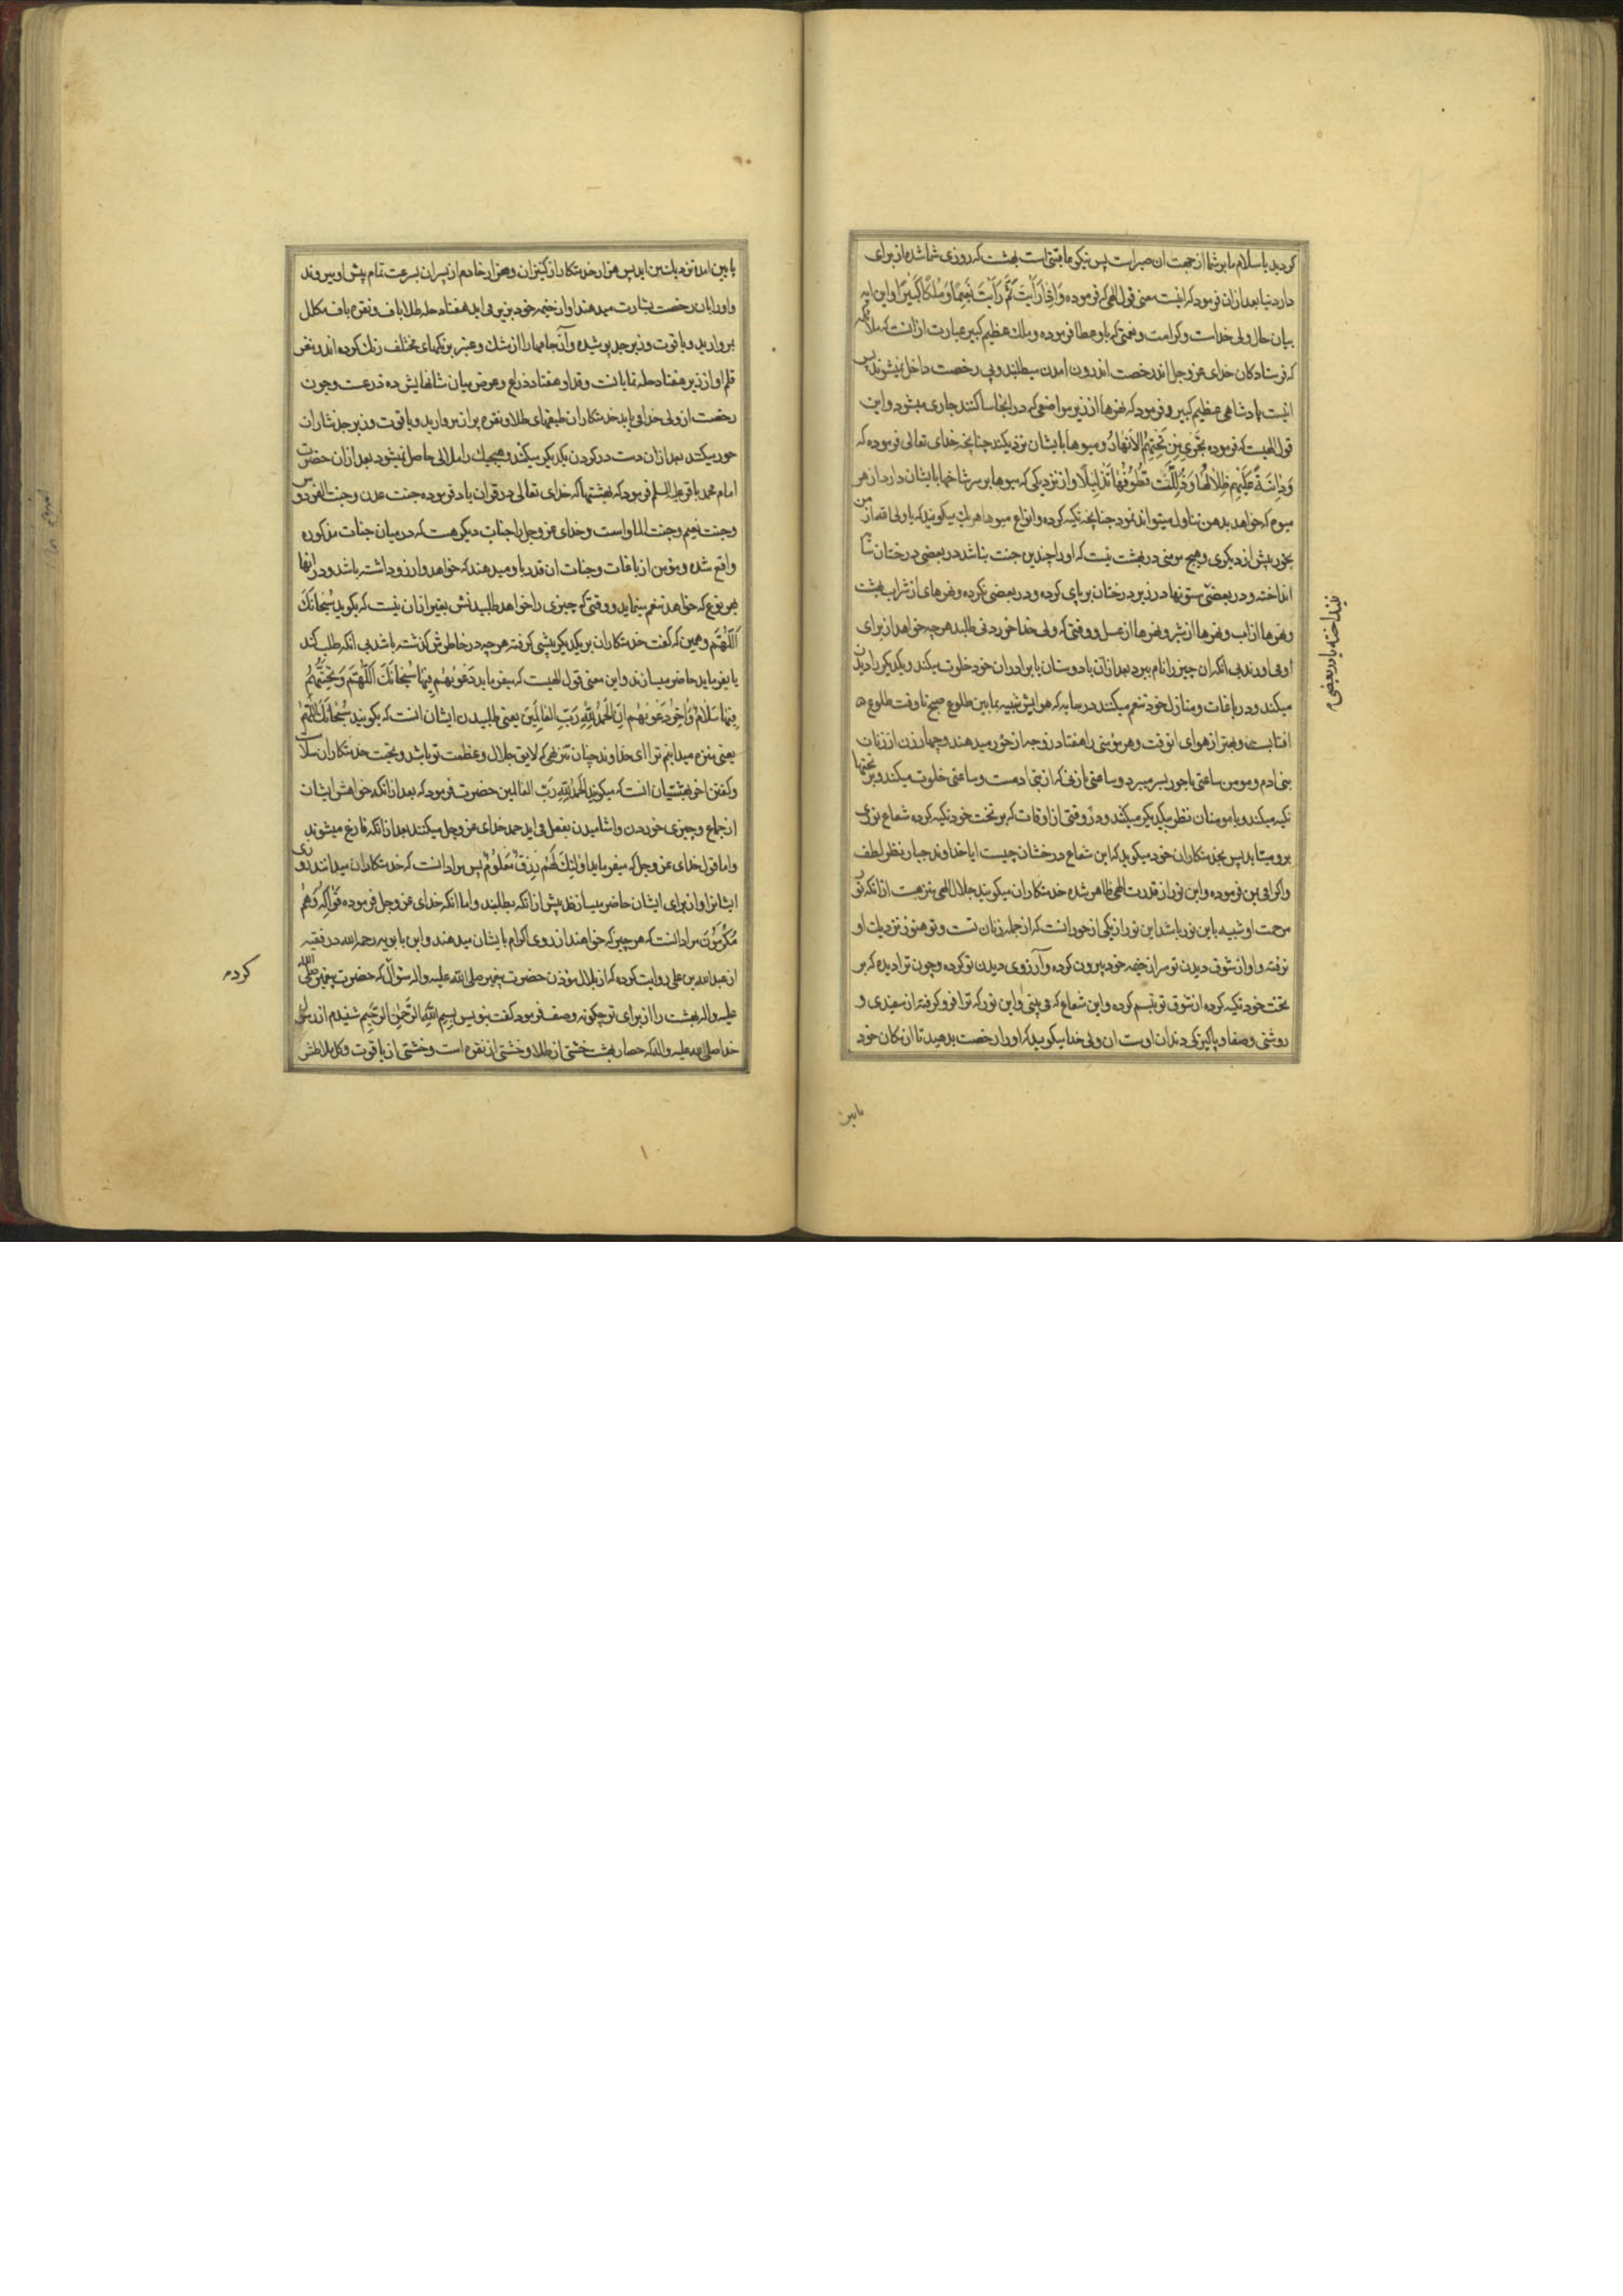 کردید یا سلام ما بر شما از جهت ان صبر است پس نیکو عاقبتی است بهشت که روزی شما شده از برای
دار دنیا بعد از ان فرمود که اینست معنی قول الهی که فرموده وَاِذا رَاَیْتَ ثَمَّ رَاَیْتَ نَعیمًا وَمُلْکًا کَبیرًا و این ایه
بیان حال ولی خداست و کرامت و نعمتی که باو عطا فرموده و ملک عظیم کبیر عبارت از انست که ملائکه
که فرستادکان خدای عز و جل اند رخصت اندرون امدن میطلبند و بی رخصت داخل نمیشوند پس
اینست پادشاهی عظیم کبیر و فرمود که نهرها از زیر مواضعی که در اینجا ساکنند جاری میشود و این
قول الهیست که فرموده تَجْری مِنْ تَحْتِهِمُ الاَنْهارُ و میوها بایشان نزدیکند چنانچه خدای تعالی فرموده که
وَدانِیَةً عَلَیْهِمْ ظِلالُها وَذُلِّلَتْ قُطُوفُها تَذْلیلًا و از نزدیکی که میوها بر سر شاخها بایشان دارد از هر
میوه که خواهد بدهن تناول میتواند نمود چنانچه تکیه کرده و انواع میوها هریک میکویند که یا ولی الله از من
بخور پیش از دیکری و هیچ مومنی در بهشت نیست که او را چندین جنت نباشد در بعضی درختان سا
انداخته و در بعضی ستونها در زیر درختان بر پای کرده و در بعضی نکرده و نهرهای از شراب بهشت
و نهرها از اب و نهرها از شیر و نهرها از عسل و وقتی که ولی خدا خوردنی طلبد هر چه خواهد از برای
او می اورند بی انکه ان چیز را نام ببرد بعد از آن با دوستان یا برادران خود خلوت میکند و یکدیکر را دیدن
میکنند و در باغات و منازل خود تنعم میکنند در سایه که هوایش شبیه بما بین طلوع صبح تا وقت طلوع
افتابست و بهتر از هوای انوقت و هر مؤمنی را هفتاد زوجه از حُور میدهند و چهار زن از زنان
بنی ادم و مومن ساعتی با حور بسر میبرد و ساعتی از زنی که از بنی ادمست و ساعتی خلوت میکند و بر تختها
تکیه میکند و با مومنان نظر بیکدیکر میکنند و در وقتی از اوقات که بر تخت خود تکیه کرده شعاع نوری
برو میتابد پس بخدمتکاران خود میکوید که این شعاع درخشان چیست ایا خداوند جبار نظر لطف
و اکرام بمن فرموده و این نور از قدرت الهی ظاهر شده خدمتکاران میکویند جلال الهی منزهست از انکه نور
مرحمت او شبیه باین نور باشد این نور از یکی از حورانست که از جمله زنان تست و تو هنوز نزدیک او
نرفته و او از شوق دیدن تو سر از خیمه خود بیرون کرده و آرزوی دیدن تو کرده و چون ترا دیده که بر
تخت خود تکیه کرده از شوق تو تبسم کرده و این شعاع که می بینی و این نور که ترا فرو کرفته از سفیدی و
روشنی و صفا و پاکیزکی دندان اوست ان ولی خدا میکوید که او را رخصت بدهید تا از مکان خود
نینداخته یا در بعضی
پایین
پایین امده نزدیک من اید پس هزار خدمتکار از کنیزان و هزار خادم از پسران بسرعت تمام پیش او میروند
و او را بان رخصت بشارت میدهند او از خیمه خود بزیر می اید هفتاد حله طلا باف و نقره باف مکلل
بمروارید و یاقوت و زبرجد پوشیده و آن جامها را از مشک و عنبر برنکهای مختلف رنک کرده اند و مغز
قلم او از زیر هفتاد حله نمایانست و قد او هفتاد ذراع و عرض میان شانهایش ده ذرعست و چون
رخصت از ولی خدا می یابد خدمتکاران طبقهای طلا و نقره پر از مروارید و یاقوت و زبرجد نثار ان
حور میکنند بعد از ان دست در کردن یکدیکر میکنند و هیچیک را ملالی حاصل نمیشود بعد از ان حضرت
امام محمد باقر علیه السلم فرمود که بهشتها که خدای تعالی در قران یاد فرموده جنت عدن و جنت الفردوس
و جنت نعیم و جنت الماواست و خدای عز و جل را جنات دیکر هست که در میان جنات مذکوره
واقع شده و مؤمن از باغات و جنات ان قدر باو میدهند که خواهد و ارزو داشته باشد و در انها
بهر نوع که خواهد تنعم مینماید و وقتی که چیزی را خواهد طلبیدنش بغیر از ان نیست که بکوید سُبْحانَکَ
اَللّٰهُمَّ و همین که گفت خدمتکاران بر یکدیکر پیشی کرفته هر چه در خاطرش کذشته باشد بی انکه طلب کند
یا بفرماید حاضر میسازند و این معنی قول الهیست که میفرماید دَعْویهُمْ فیها سُبْحانَکَ اَللّٰهُمَّ وَتَحِیَّتُهُمْ
فیها سَلامٌ وَاٰخِرُ دَعْویهُمْ اَنِ الْحَمْدُ لِلّٰهِ رَبِّ الْعالَمینَ یعنی طلبیدن ایشان انست که بکویند سُبْحانَکَ اللّٰهُمَّ
یعنی منزه میدانیم ترا ای خداوند چنان تنزیهی که لایق جلال و عظمت تو باشد و تحیت خدمتکاران سلا
و کفتن اخر بهشتیان انست که میکویند اَلْحَمْدُ لِلّٰهِ رَبِّ الْعالمین حضرت فرمود که بعد از انکه خواهش ایشان
از جماع و چیزی خوردن و اشامیدن بفعل می اید حمد خدای عز و جل میکنند بعد از انکه فارغ میشوند
و اما قول خدای عز و جل که میفرماید اُولٰئِکَ لَهُمْ رِزْقٌ مَعْلُومٌ پس مراد انست که خدمتکاران میدانند روزی
ایشانرا و از برای ایشان حاضر میسازند پیش از انکه بطلبند و اما انکه خدای عز و جل فرموده فَواکِهُ وَهُمْ
مُکْرَمُونَ مراد انست که هر چیز که خواهند از روی اکرام بایشان میدهند و ابن بابویه رحمه الله در فقیه
از عبدالله بن علی روایت کرده که از بلال مؤذن حضرت پیغمبر صلی الله علیه و اله سؤال که حضرت پیغمبر صلی الله
علیه و اله بهشت را از برای تو چکونه وصف فرمود کفت بنویس بِسْمِ اللّٰهِ الرَّحْمٰنِ الرَّحیمِ شنیدم از رسول
خدا صلی الله علیه و اله که حصار بهشت خشتی از طلا و خشتی از نقره است و خشتی از یاقوت و کل ملاطش
کردم